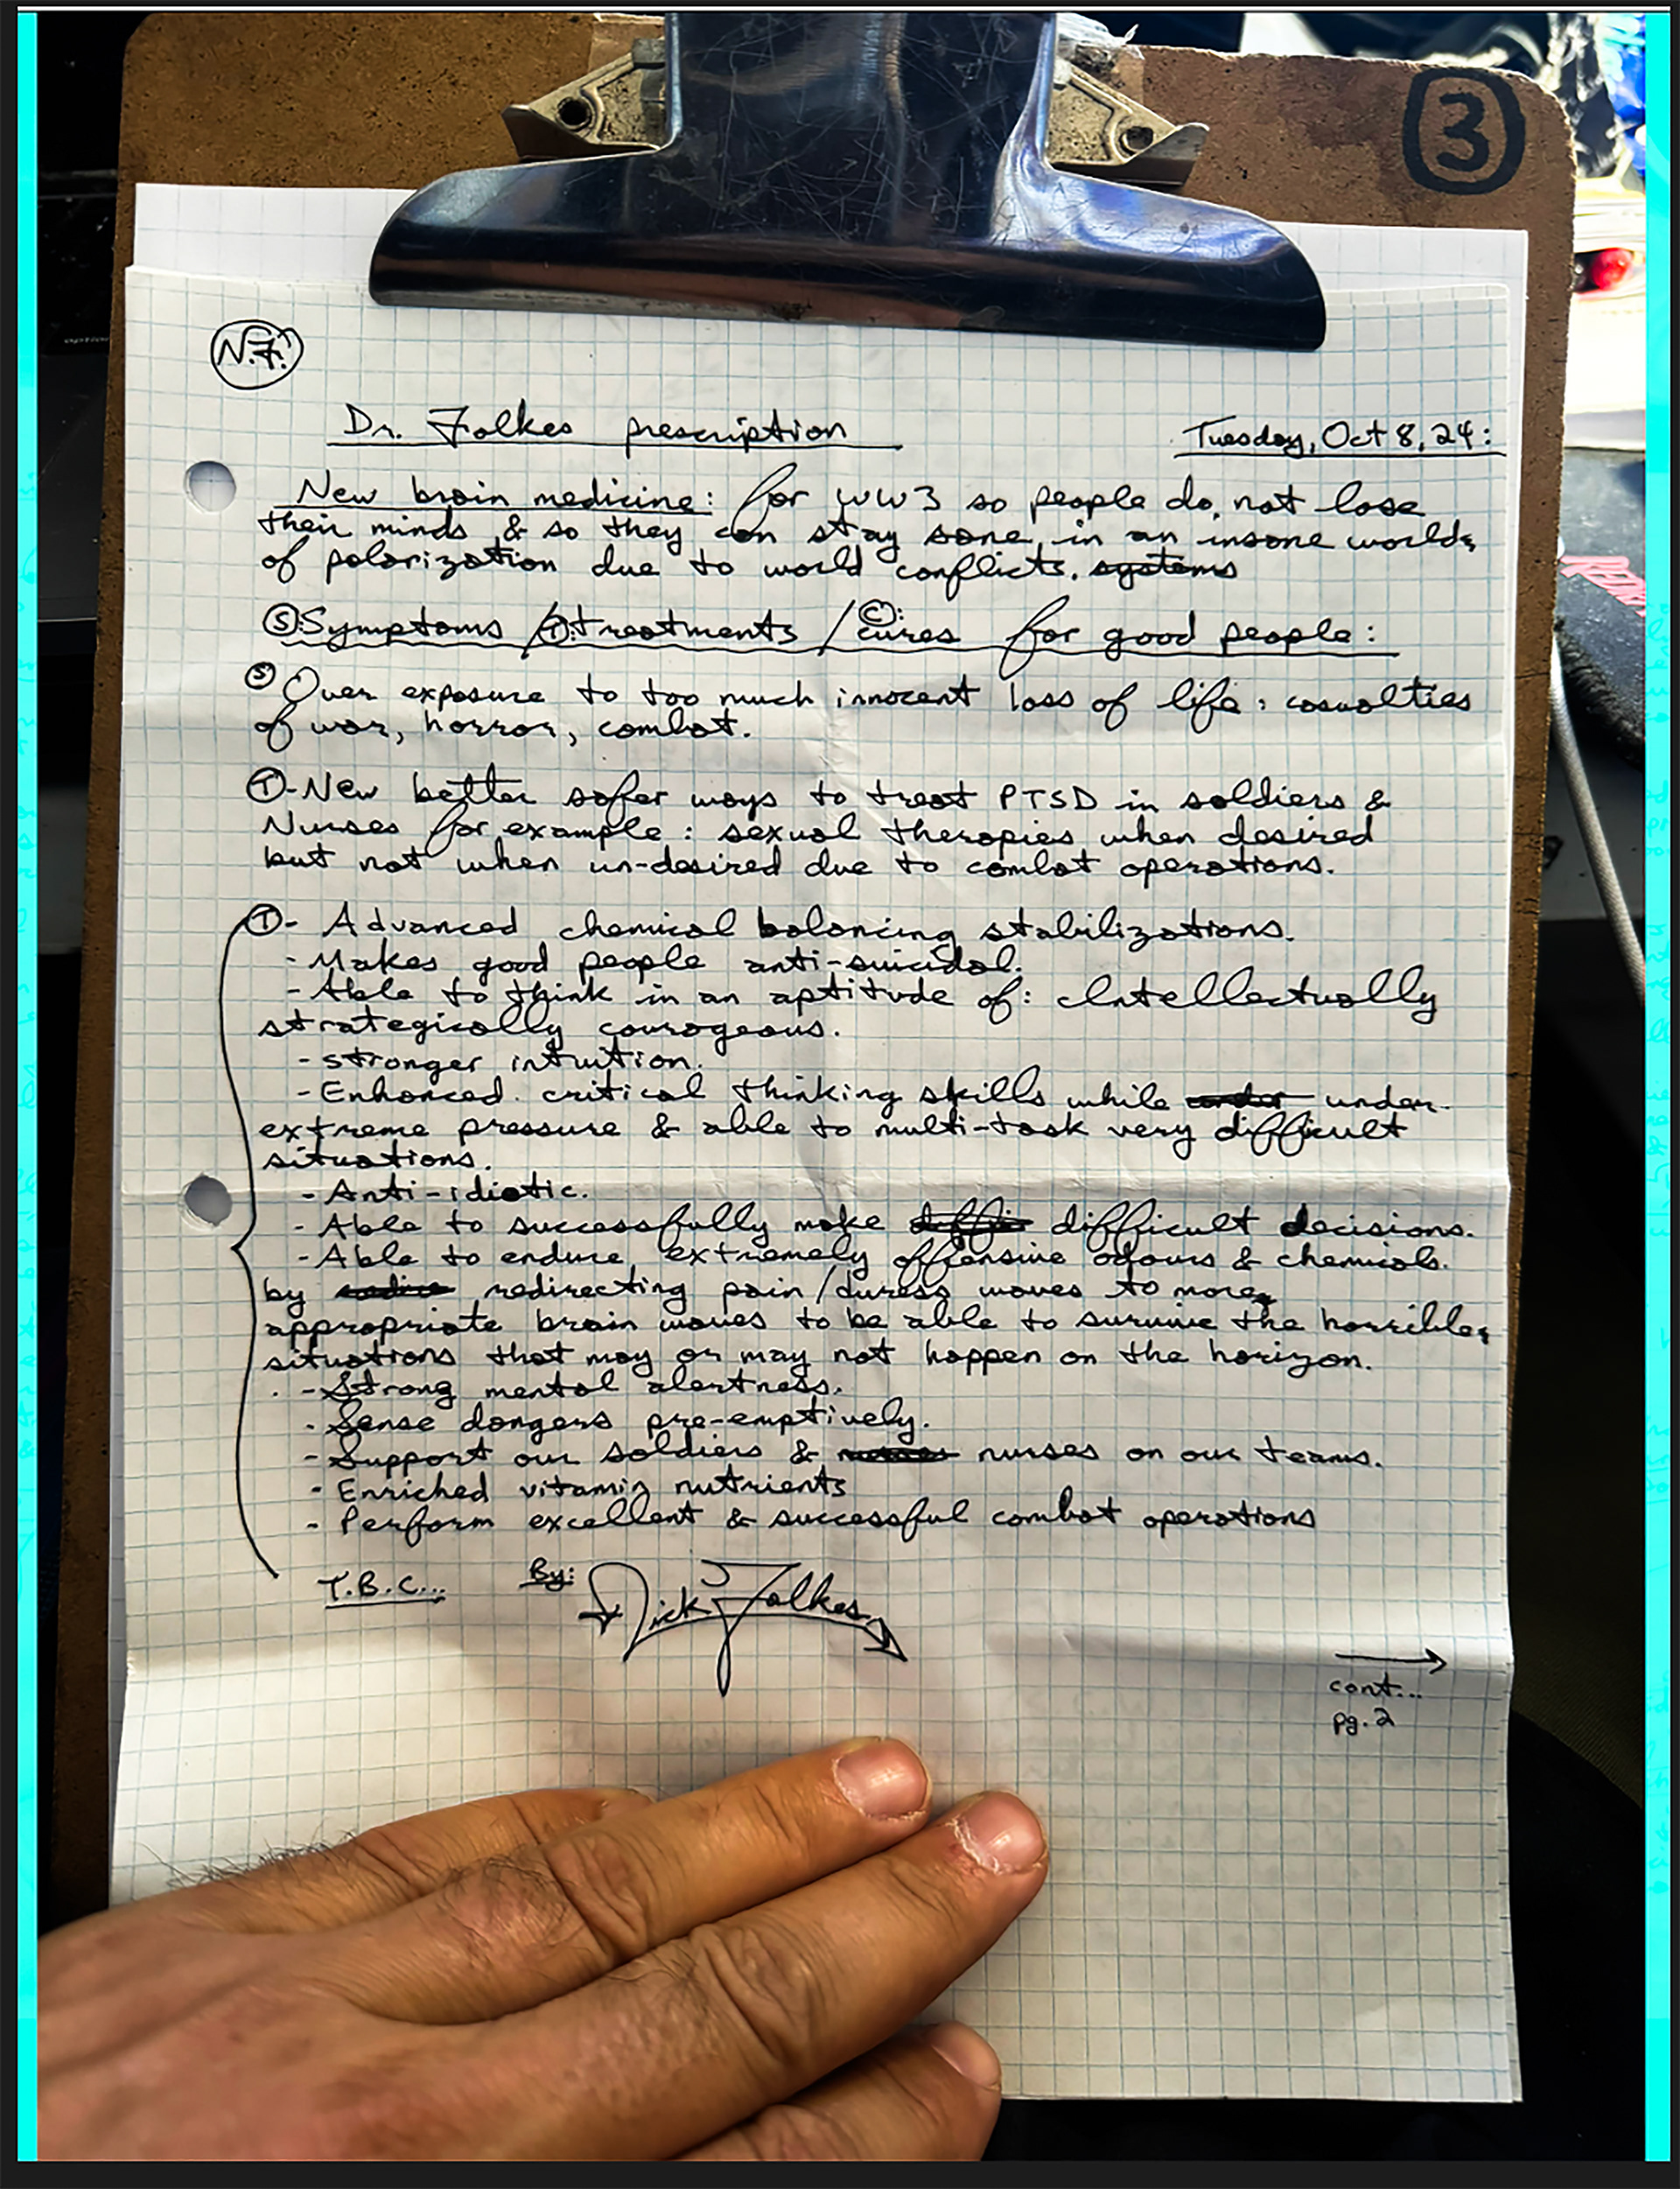 3
N.F.
Dr. Folkes prescription
Tuesday, Oct 8, 24:
New brain medicine: for WW3 so people do not lose
their minds & so they can stay sane in an insane world
of polarization due to world conflicts. systems
Ⓢ Symptoms / Ⓣ: treatments / Ⓒ: cures for good people:
Ⓢ Over exposure to too much innocent loss of life: casualties
of war, horror, combat.
Ⓣ- New better safer ways to treat PTSD in soldiers &
Nurses for example: sexual therapies when desired
but not when un-desired due to combat operations.
Ⓣ- Advanced chemical balancing stabilizations.
- Makes good people anti-suicidal.
- Able to think in an aptitude of: Intellectually
strategically courageous.
- stronger intuition.
- Enhanced critical thinking skills while under
extreme pressure & able to multi-task very difficult
situations.
- Anti-idiotic.
- Able to successfully make difficult decisions.
- Able to endure extremely offensive odours & chemicals.
by redirecting pain/duress waves to more
appropriate brain waves to be able to survive the horrible
situations that may or may not happen on the horizon.
- Strong mental alertness.
- Sense dangers pre-emptively.
- Support our soldiers & nurses on our teams.
- Enriched vitamin nutrients
- Perform excellent & successful combat operations
T.B.C... By: Nick Folkes
cont...
pg. 2
option